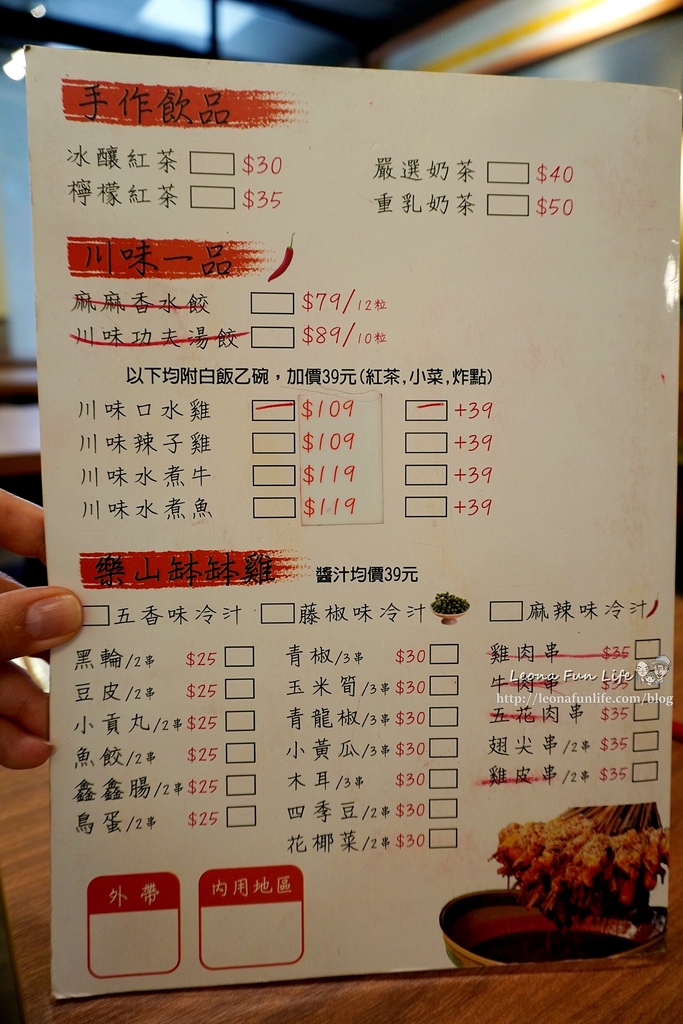 手作飲品
冰釀紅茶 $30
檸檬紅茶 $35
嚴選奶茶 $40
重乳奶茶 $50
川味一品
麻麻香水餃 $79/12粒
川味功夫湯餃 $89/10粒
以下均附白飯乙碗，加價39元(紅茶,小菜,炸點)
川味口水雞 $109 +39
川味辣子雞 $109 +39
川味水煮牛 $119 +39
川味水煮魚 $119 +39
樂山缽缽雞 醬汁均價39元
五香味冷汁 藤椒味冷汁 麻辣味冷汁
黑輪/2串 $25
豆皮/2串 $25
小貢丸/2串 $25
魚餃/2串 $25
鑫鑫腸/2串 $25
鳥蛋/2串 $25
青椒/3串 $30
玉米筍/3串 $30
青龍椒/3串 $30
小黃瓜/3串 $30
木耳/3串 $30
四季豆/2串 $30
花椰菜/2串 $30
雞肉串 $35
牛肉串 $35
五花肉串 $35
翅尖串/2串 $35
雞皮串/2串 $35
Leona Fun Life
http://leonafunlife.com/blog
外帶
內用地區